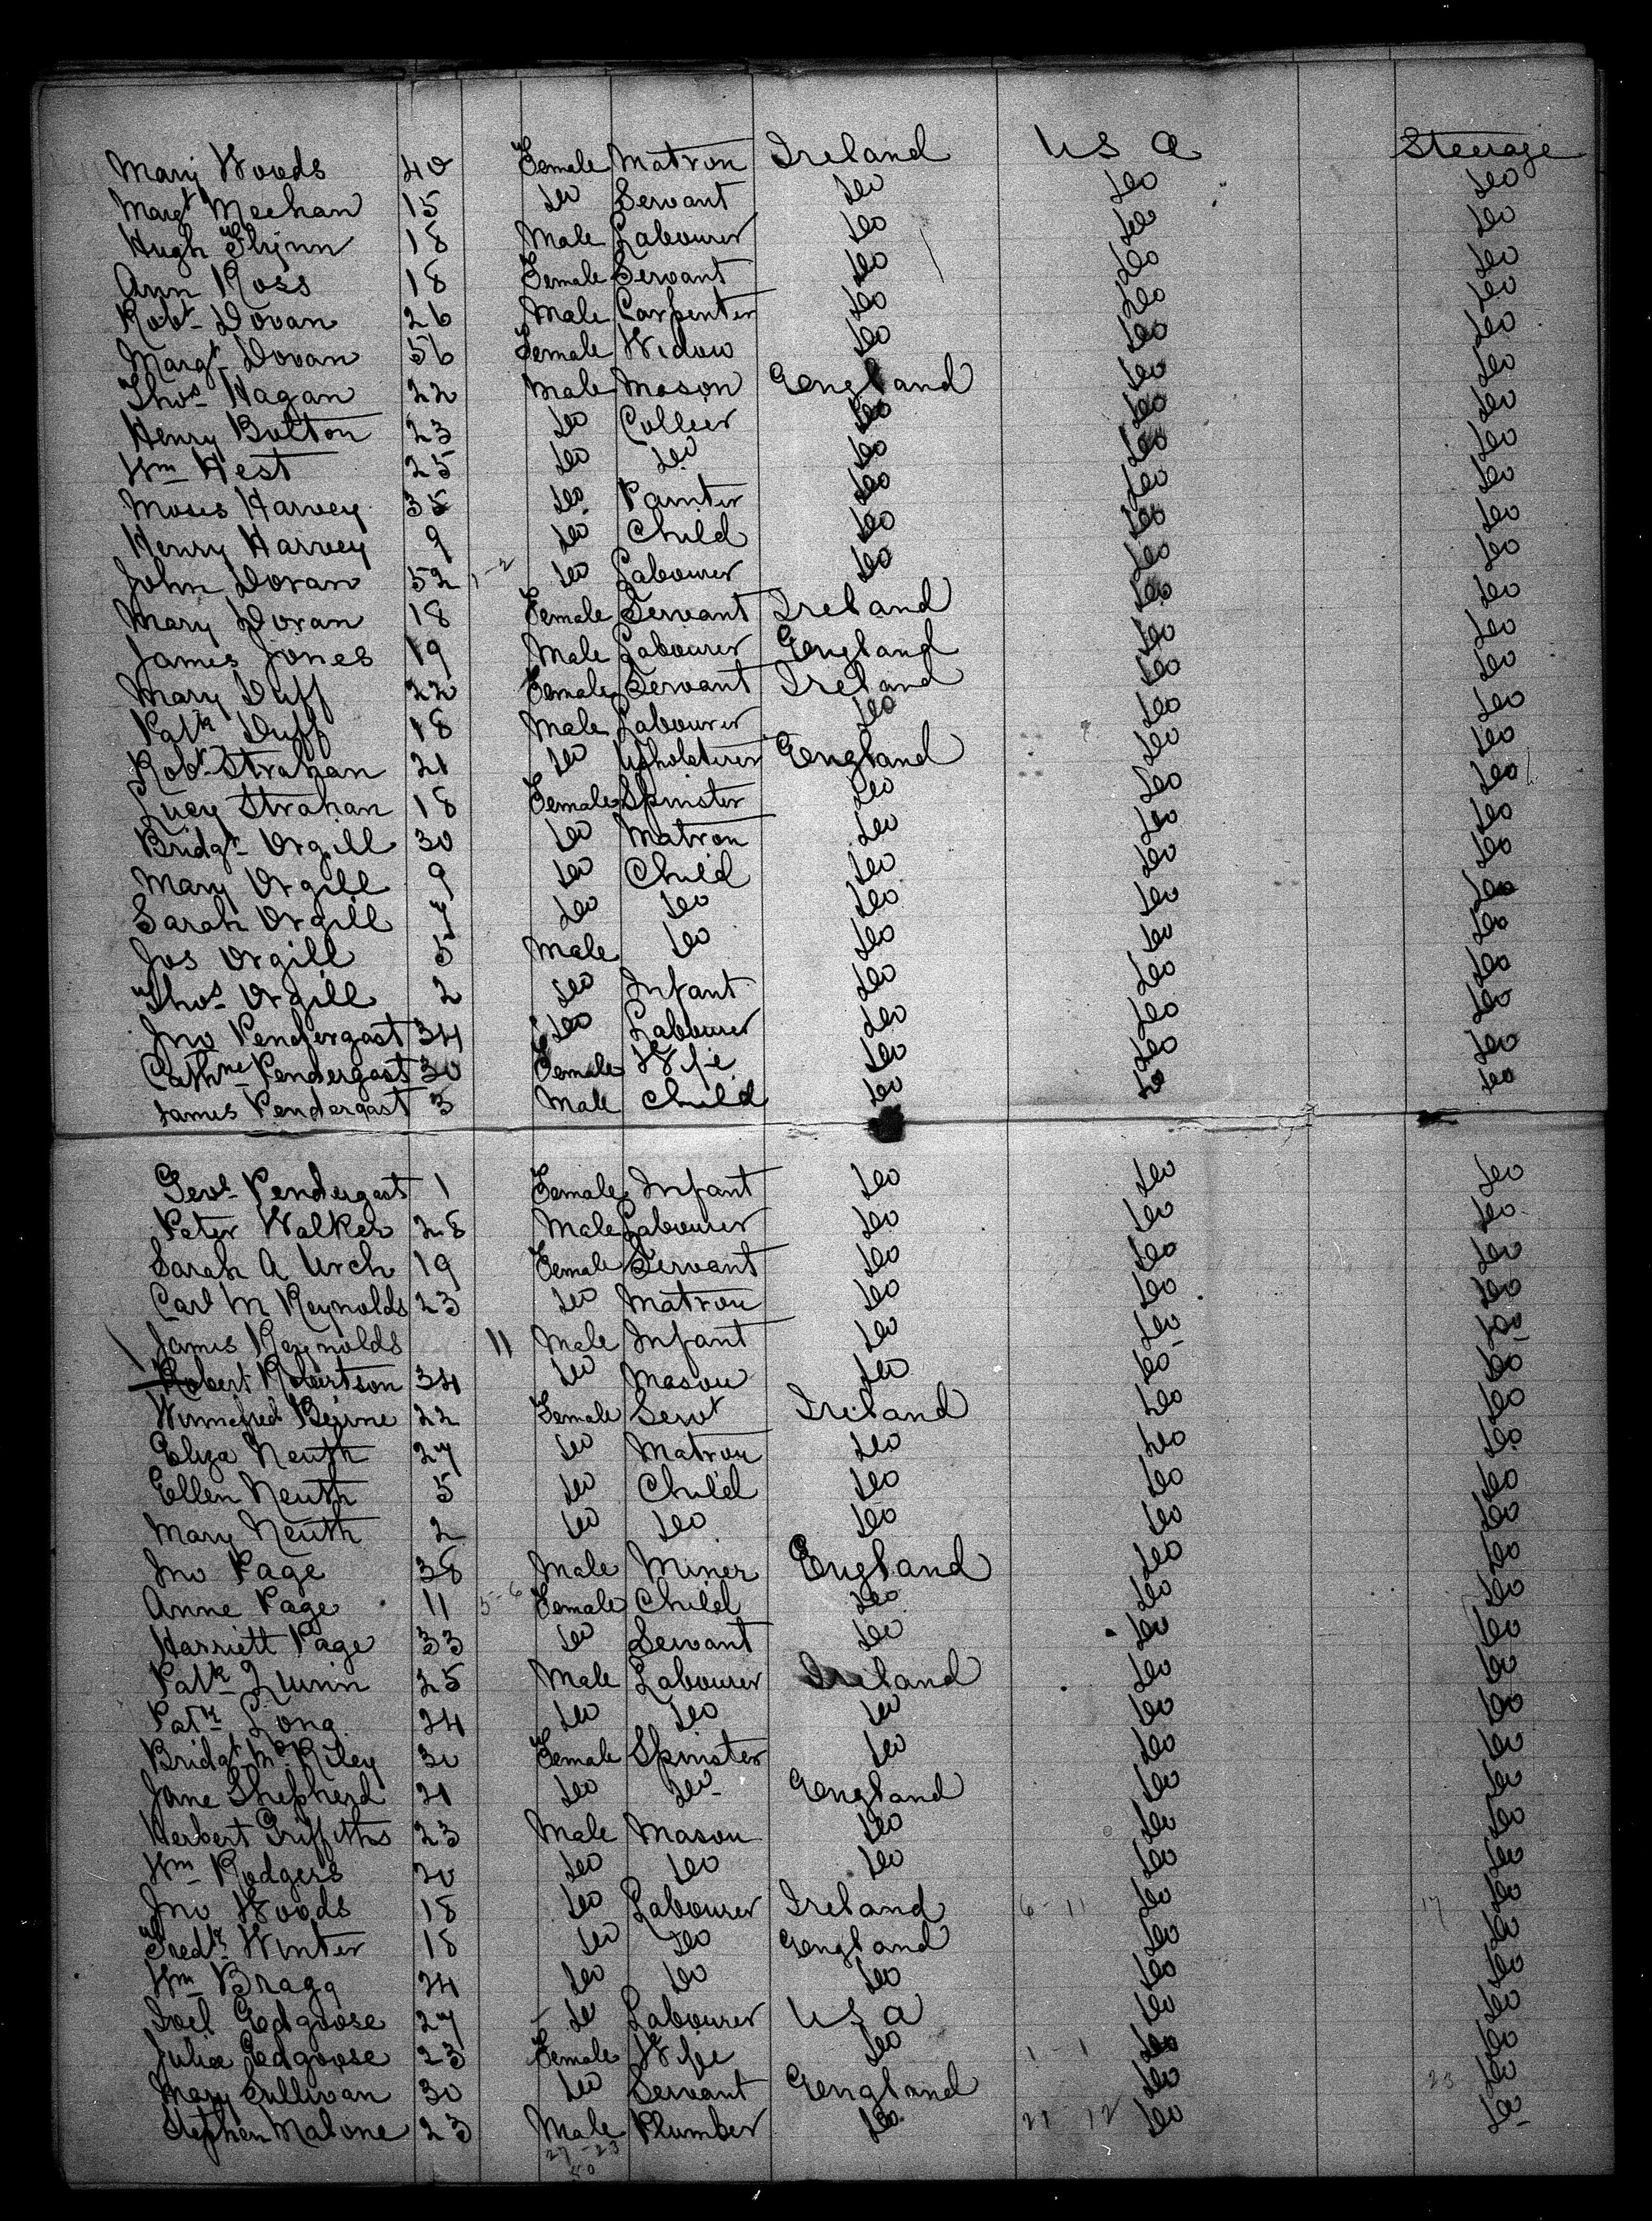 Mary Woods 40 Female Matron Ireland U S A Steerage
Margt Meehan 15 do Servant do do do
Hugh Flynn 18 Male Labourer do do do
Ann Ross 18 Female Servant do do do
Robt Dovan 26 Male Carpenter do do do
Margt Dovan 56 Female Widow do do do
Thos Hagan 22 Male Mason England do do
Henry Bolton 23 do Collier do do do
Wm West 25 do do do do do
Moses Harvey 35 do Painter do do do
Henry Harvey 9 do Child do do do
John Doran 52 1-2 do Labourer do do do
Mary Doran 18 Female Servant Ireland do do
James Jones 19 Male Labourer England do do
Mary Duff 22 Female Servant Ireland do do
Patk Duff 18 Male Labourer do do do
Robt Strahan 21 do Upholsterer England do do
Lucy Strahan 18 Female Spinster do do do
Bridgt Orgill 30 do Matron do do do
Mary Orgill 9 do Child do do do
Sarah Orgill 7 do do do do do
Jos Orgill 5 Male do do do do
Thos Orgill 2 do Infant do do do
Jno Pendergast 34 do Labourer do do do
Cathne Pendergast 30 Female Wife do do do
James Pendergast 3 Male Child do do do
Pendergast 1 Female Infant do do do
Peter Walker 28 Male Labourer do do do
Sarah A Urch 19 Female Servant do do do
Carl M Reynolds 23 do Matron do do do
James Reynolds 11 Male Infant do do do
Robert Robertson 34 do Mason do do do
Winnefred Beirne 22 Female Servt Ireland do do
Eliza Neuth 27 do Matron do do do
Ellen Neuth 5 do Child do do do
Mary Neuth 2 do do do do do
Jno Page 38 Male Miner England do do
Anne Page 11 5-6 Female Child do do do
Harriett Page 33 do Servant do do do
Patk Quinn 25 Male Labourer Ireland do do
Patk Long 24 do do do do do
Bridgt Mc Riley 30 Female Spinster do do do
Jane Shepherd 21 do do England do do
Herbert Griffiths 23 Male Mason do do do
Wm Rodgers 20 do do do do do
Jno Woods 18 do Labourer Ireland 6-11 do 17 do
Fredk Winter 18 do do England do do
Wm Bragg 24 do do do do do
Joel Gedgoose 27 do Labourer U S A do do
Julia Gedgoose 23 Female Wife do 1-1 do do
Mary Sullivan 30 do Servant England do 23 do
Stephen Malone 23 Male Plumber do 21-12 do do
27-23
50